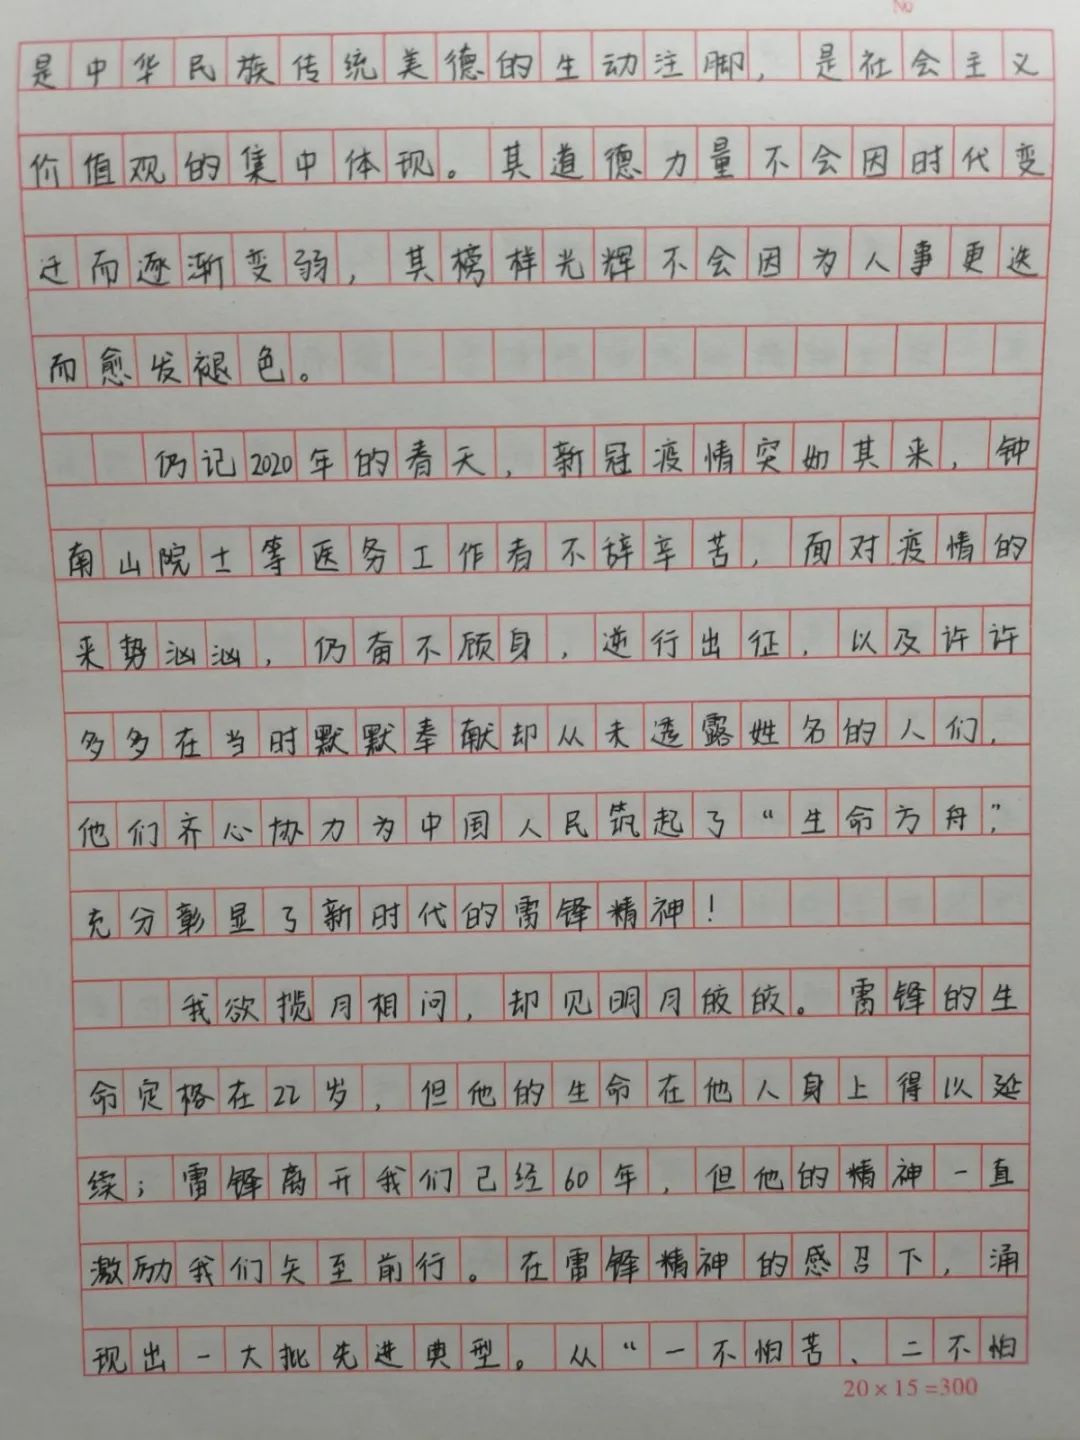 No
是中华民族传统美德的生动注脚，是社会主义
价值观的集中体现。其道德力量不会因时代变
迁而逐渐变弱，其榜样光辉不会因为人事更迭
而愈发褪色。
仍记2020年的春天，新冠疫情突如其来，钟
南山院士等医务工作者不辞辛苦，面对疫情的
来势汹汹，仍奋不顾身，逆行出征，以及许许
多多在当时默默奉献却从未透露姓名的人们，
他们齐心协力为中国人民筑起了“生命方舟”，
充分彰显了新时代的雷锋精神！
我欲揽月相问，却见明月皎皎。雷锋的生
命定格在22岁，但他的生命在他人身上得以延
续；雷锋离开我们已经60年，但他的精神一直
激励我们矢至前行。在雷锋精神的感召下，涌
现出一大批先进典型。从“一不怕苦、二不怕
20×15=300